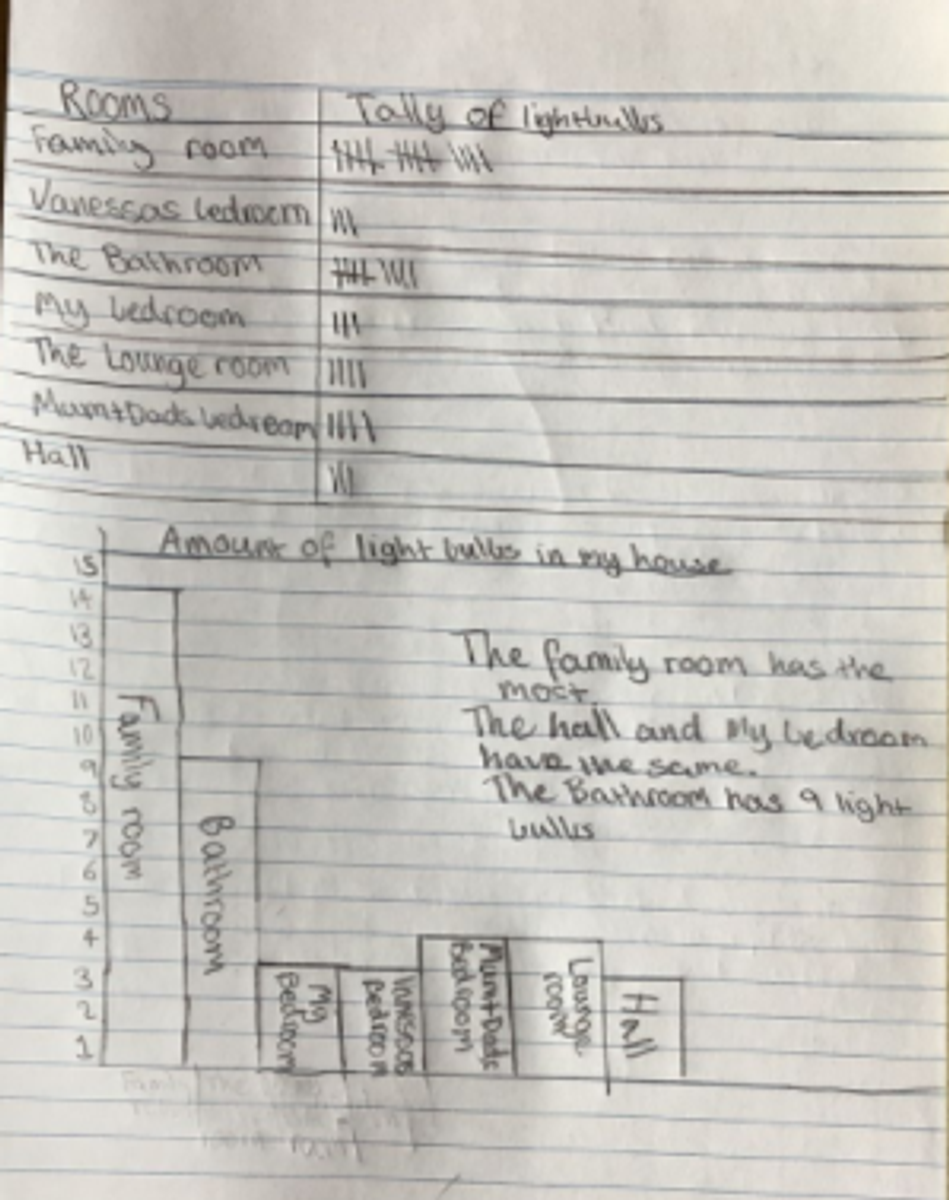 Rooms Tally of lightbulbs
Family room
Vanessas bedroom
The Bathroom
My bedroom
The Lounge room
Mum+Dads bedroom
Hall
Amount of light bulbs in my house
15
14
13
12
11
10
9
8
7
6
5
4
3
2
1
Family room
Bathroom
My Bedroom
Vanessas Bedroom
Mum+Dads Bedroom
Lounge room
Hall
The family room has the
most.
The hall and My bedroom
have the same.
The Bathroom has 9 light
bulbs